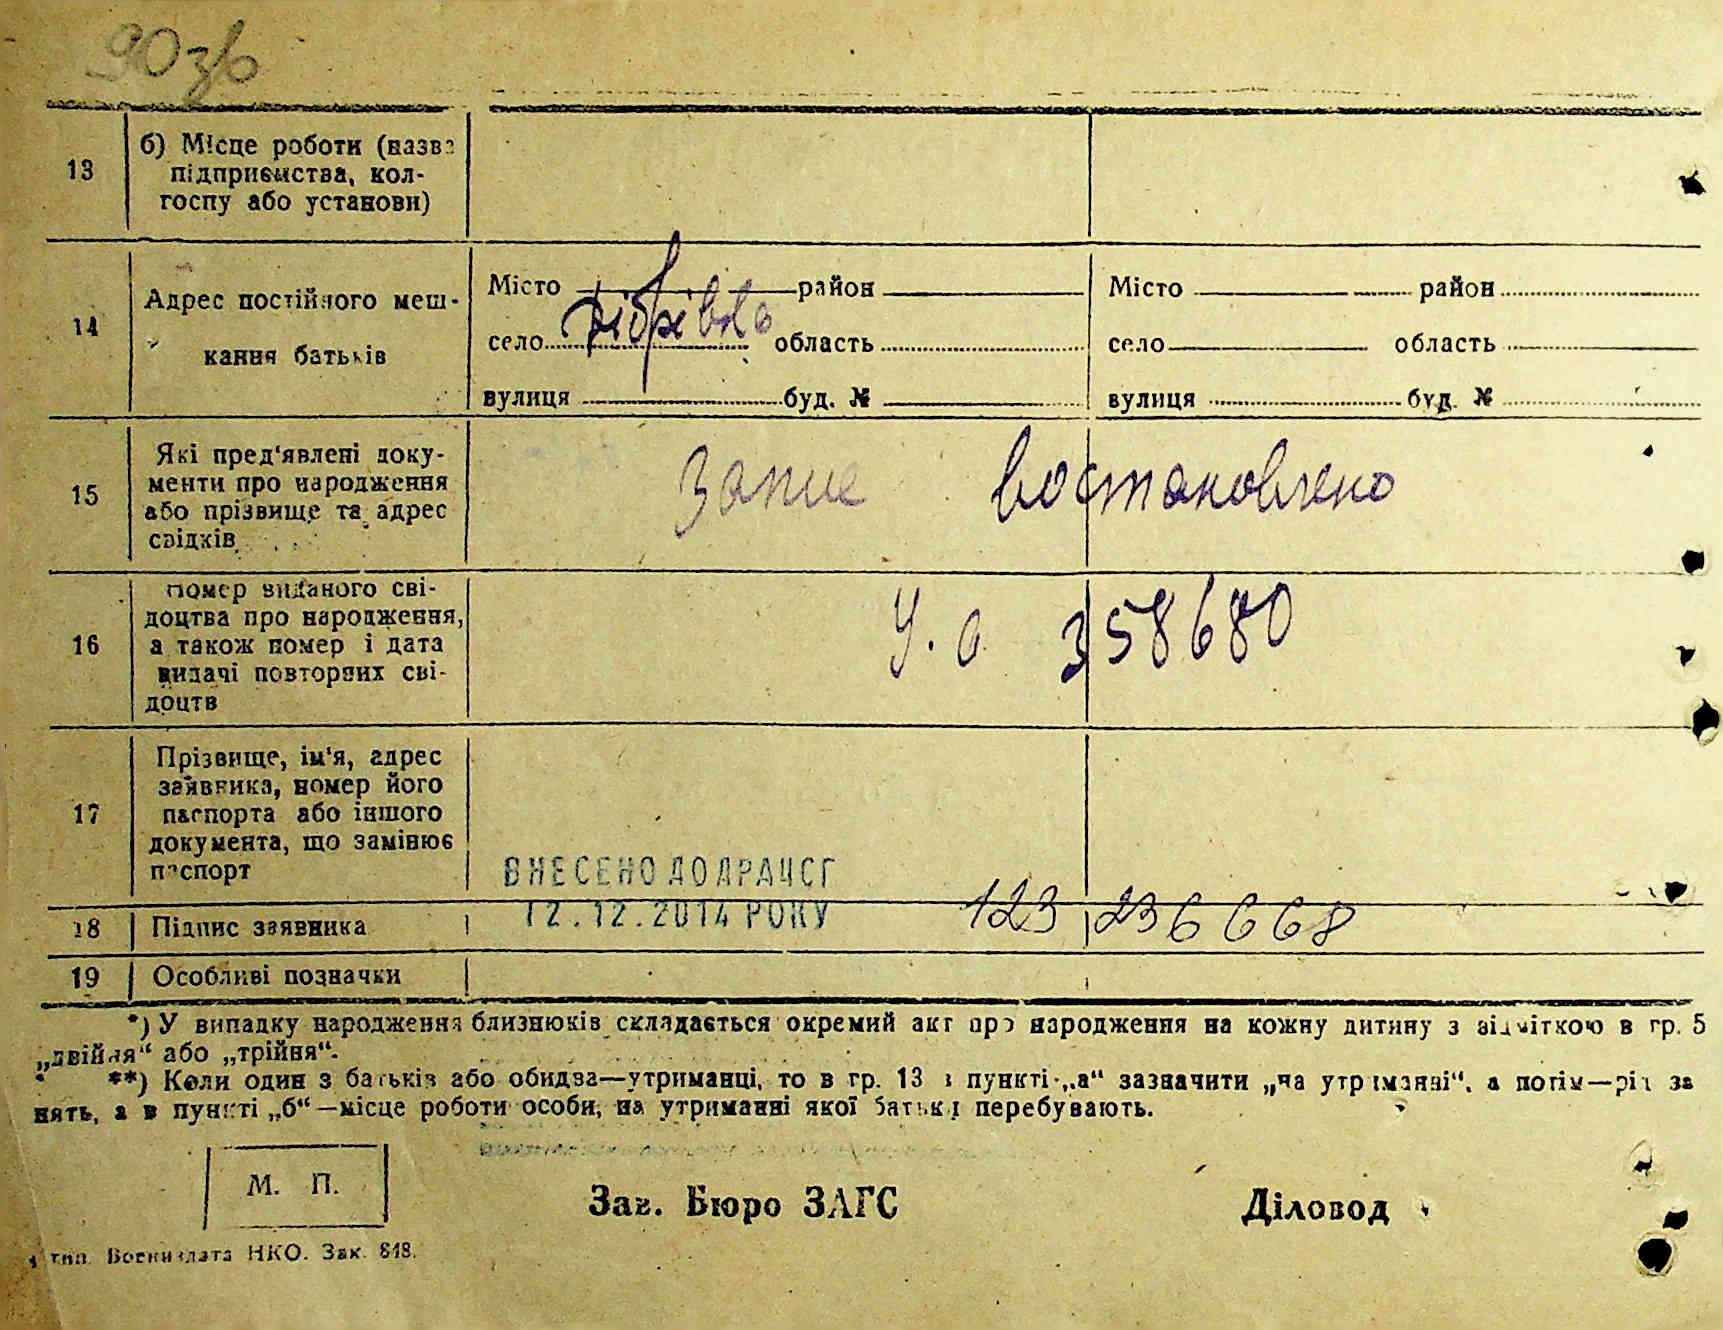 90 з/о
13
б) Місце роботи (назва
підприємства, кол-
госпу або установи)
14
Адрес постійного меш-
кання батьків
Місто район
село Дібрівка область
вулиця буд. №
Місто район
село область
вулиця буд. №
15
Які пред'явлені доку-
менти про народження
або прізвище та адрес
свідків
Запис востановлено
16
Номер виданого сві-
доцтва про народження,
а також номер і дата
видачі повторних сві-
доцтв
У.О 358680
17
Прізвище, ім'я, адрес
заявника, номер його
паспорта або іншого
документа, що замінює
паспорт
ВНЕСЕНО ДО ДРАЦСГ
12.12.2014 РОКУ
123 236668
18
Підпис заявника
19
Особливі позначки
*) У випадку народження близнюків складається окремий акт про народження на кожну дитину з відміткою в гр. 5
„двійня“ або „трійня“.
**) Коли один з батьків або обидва—утриманці, то в гр. 13 в пункті „а“ зазначити „на утриманні“, а потім—рід за
нять, а в пункті „б“—місце роботи особи, на утриманні якої батьки перебувають.
М. П.
Зав. Бюро ЗАГС
Діловод
тип. Воениздата НКО. Зак. 848.